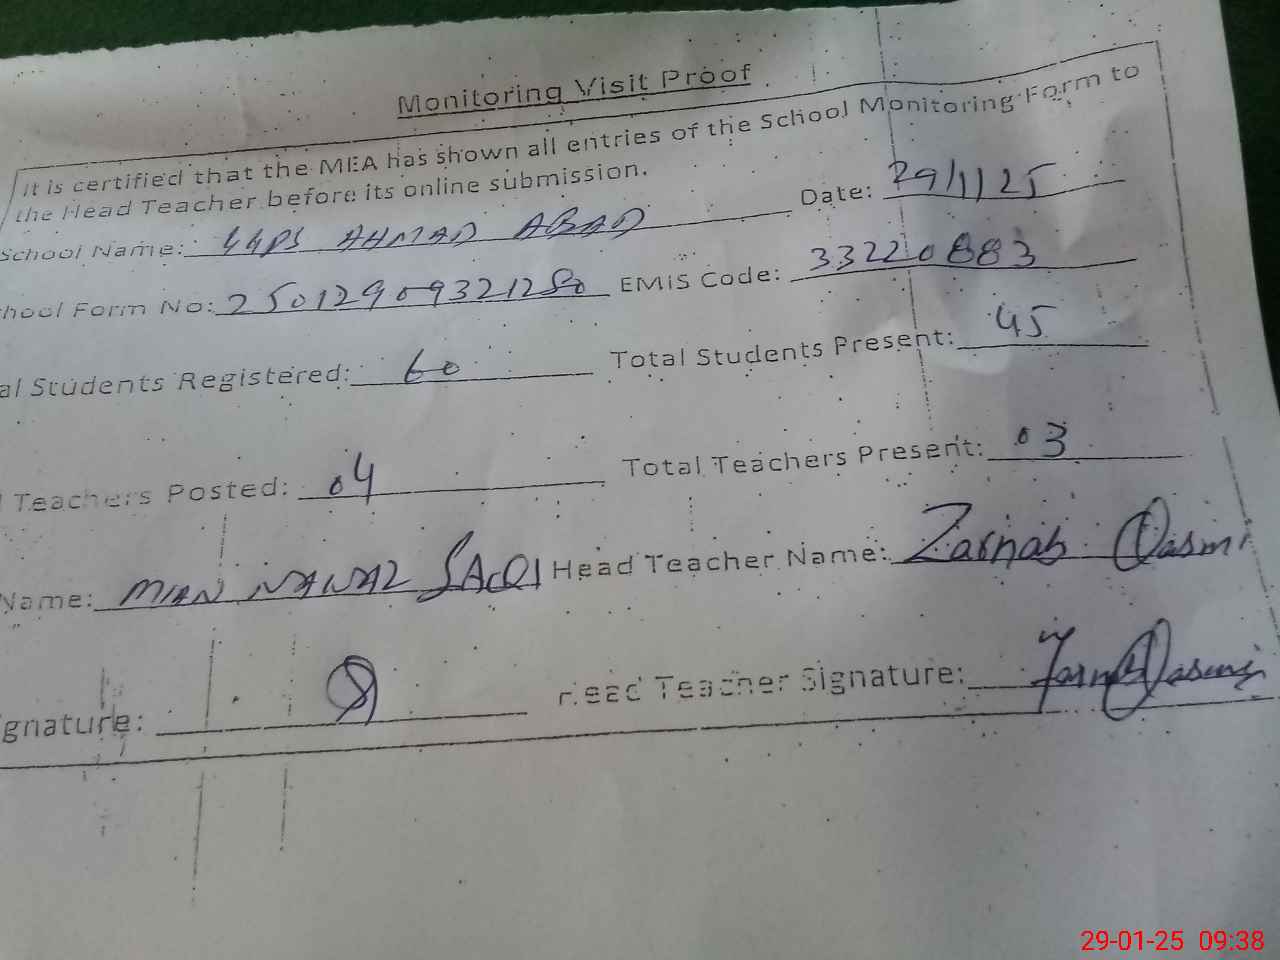 Monitoring Visit Proof
It is certified that the MEA has shown all entries of the School Monitoring Form to
the Head Teacher before its online submission.
School Name: GGPS AHMAD ABAD Date: 29/1/25
hool Form No: 2501290932125 EMIS Code: 33220883
al Students Registered: 60 Total Students Present: 45
Teachers Posted: 04 Total Teachers Present: 03
Name: MIAN NAWAZ SAQI Head Teacher Name: Zarnab Qasmi
gnature: Head Teacher Signature: Zarnab Qasmi
29-01-25 09:38